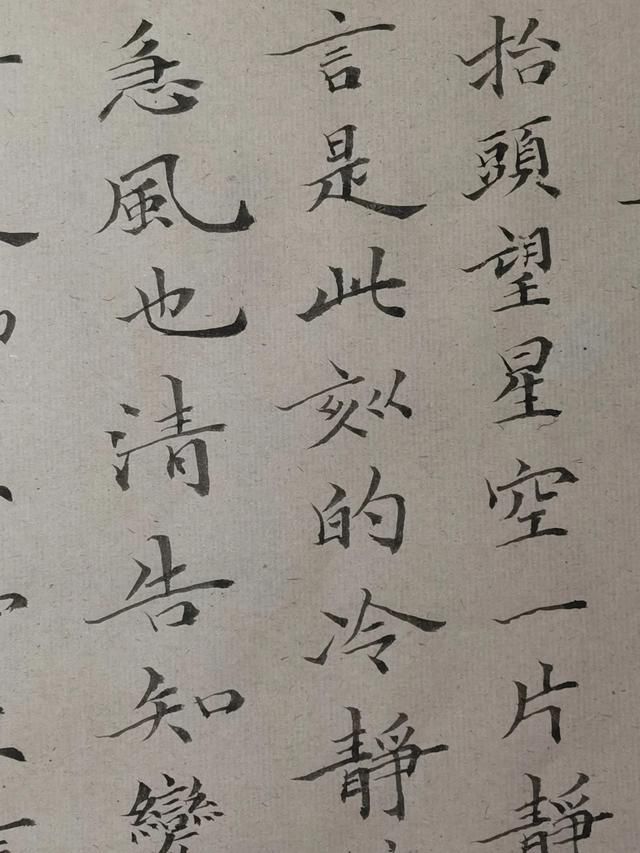 抬頭望星空一片靜
言是此刻的冷靜
急風也清告知變